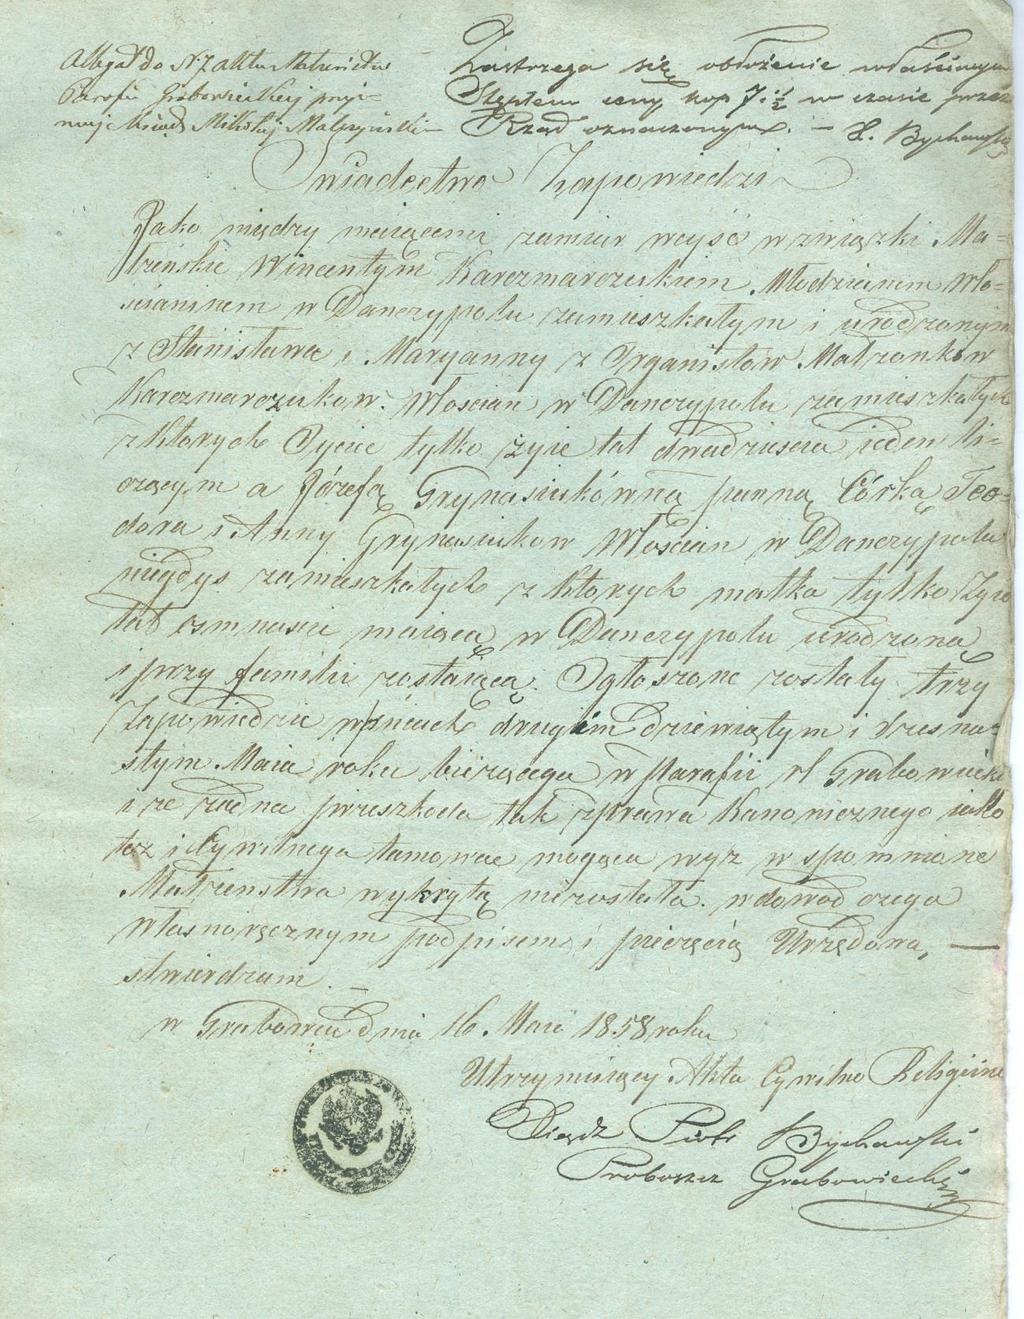 Allegat do N. 7 Aktu Małżeństwa
Parafii Grabowieckiej przyi-
muje Ksiądz Mikołaj
Zastrzega się obłożenie właściwym
Stęplem ceny kop 7 ½ w czasie przez
Rząd oznaczonym. — X. Bychawski
Swiadectwo Zapowiedzi
Jako między maiącemi zamiar weyść w związki Ma-
łżeńskie Wincentym Karczmarczukiem Młodzieńem Wło-
scianinem w Danczypolu zamieszkałym i urodzonym
z Stanisława i Maryanny z Organistów Małżonków
Karczmarczuków. Włoscian w Danczypolu zamieszkałych
z których Oyciec tylko żyie lat dwadziescia ieden li-
czącym a Józefą Grynasiukówną panną Córką Teo-
dora i Anny Grynasiukow Włoscian w Danczypolu
niegdys zamieszkałych z których matka tylko żyie
lat osmnascie maiącą w Danczypolu urodzoną
i przy familii zostaiącą. Ogłoszone zostały trzy
Zapowiedzie w dniach drugim dziewiątym i szesna-
stym Maia roku bieżącego w Parafii rł Grabowiecki
i że żadna przeszkoda tak z prawa Kanonicznego iako
też i Cywilnego tamować mogąca wyż wspomnione
Małżenstwo wykrytą niezostała. w dowod czego
własnoręcznym podpisem i pieczęcią Urzędową, —
stwierdzam. —
w Grabowcu dnia 16. Maia 1858 roku
Utrzymuiący Akta Cywilno Religiine
Xiądz Piotr Bychawski
Proboszcz Grabowiecki